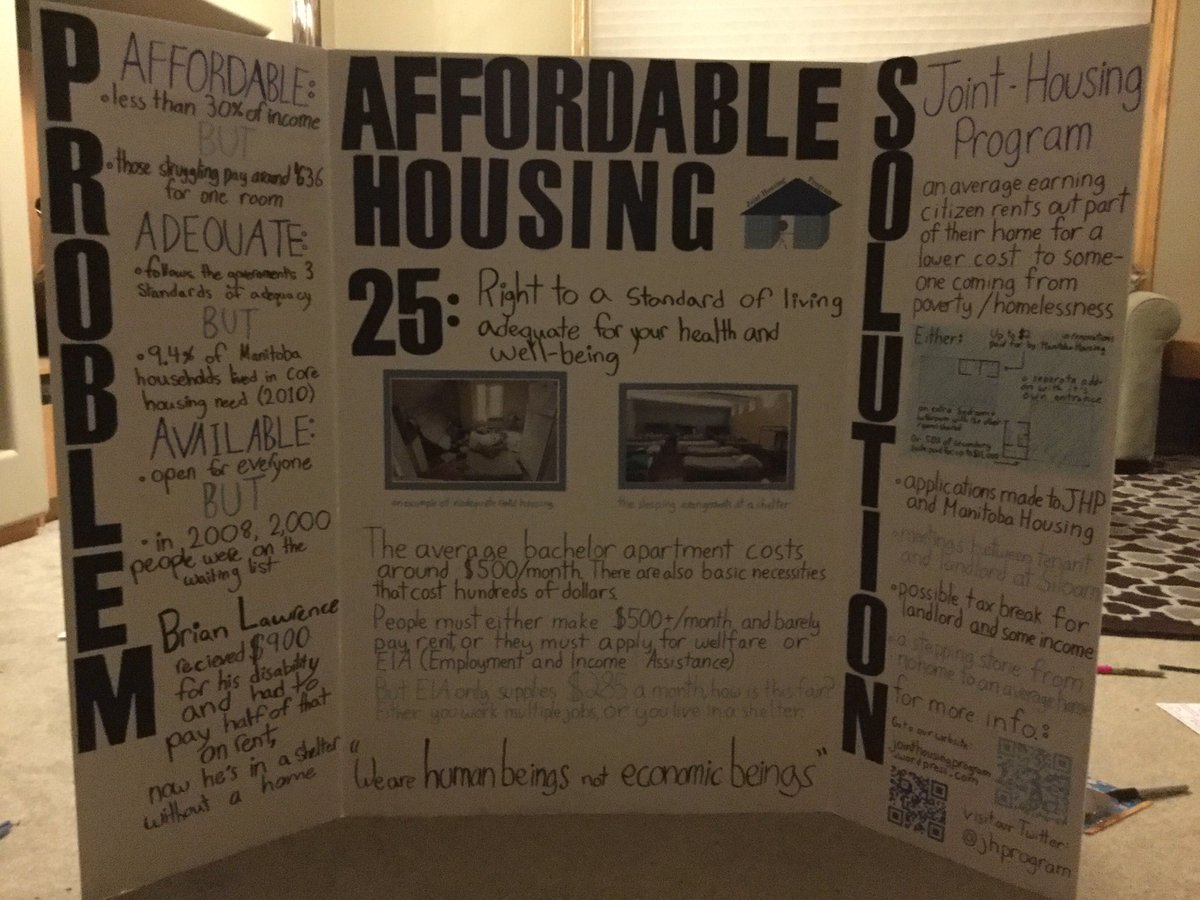 PROBLEM
AFFORDABLE:
• less than 30% of income
BUT
• those struggling pay around $636
for one room
ADEQUATE:
• follows the governments 3
standards of adequacy
BUT
• 9.4% of Manitoba
households lived in core
housing need (2010)
AVAILABLE:
• open for everyone
BUT
• in 2008, 2,000
people were on the
waiting list
Brian Lawrence
recieved $900
for his disability
and had to
pay half of that
on rent,
now he's in a shelter
without a home
AFFORDABLE
HOUSING
Joint Housing Program
25: Right to a standard of living
adequate for your health and
well-being
an example of inadequate housing
the sleeping arrangements at a shelter
The average bachelor apartment costs
around $500/month. There are also basic necessities
that cost hundreds of dollars.
People must either make $500+/month and barely
pay rent, or they must apply for wellfare or
EIA (Employment and Income Assistance)
But EIA only supplies $285 a month, how is this fair?
Either you work multiple jobs, or you live in a shelter.
"We are human beings not economic beings"
SOLUTION
Joint-Housing
Program
an average earning
citizen rents out part
of their home for a
lower cost to some-
one coming from
poverty/homelessness
Either:
Up to $2 in renovations
paid for by Manitoba Housing
a separate add-
on with it's
own entrance
an extra bedroom +
bathroom with the other
rooms shared
Or 50% of secondary
suite paid for up to
• applications made to JHP
and Manitoba Housing
• meetings between tenant
and landlord at Siloam
• possible tax break for
landlord and some income
• a stepping stone from
no home to an average home
for more info.:
Go to our website:
jointhousingprogram
.wordpress.com
visit our Twitter:
@jhprogram